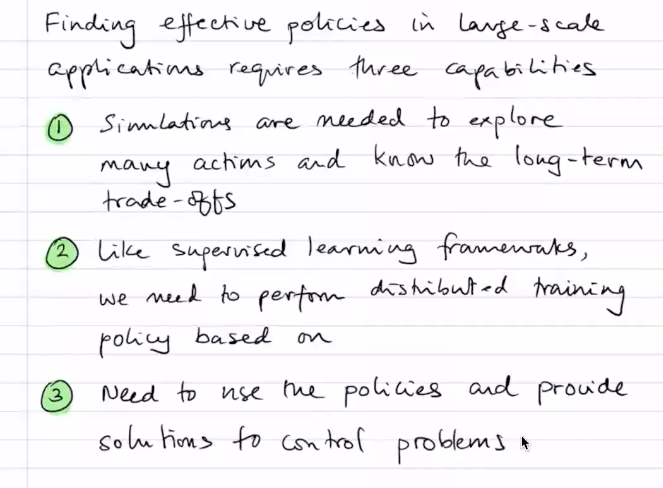 Finding effective policies in large-scale
applications requires three capabilities
① Simulations are needed to explore
many actions and know the long-term
trade-offs
② Like supervised learning frameworks,
we need to perform distributed training
policy based on
③ Need to use the policies and provide
solutions to control problems.